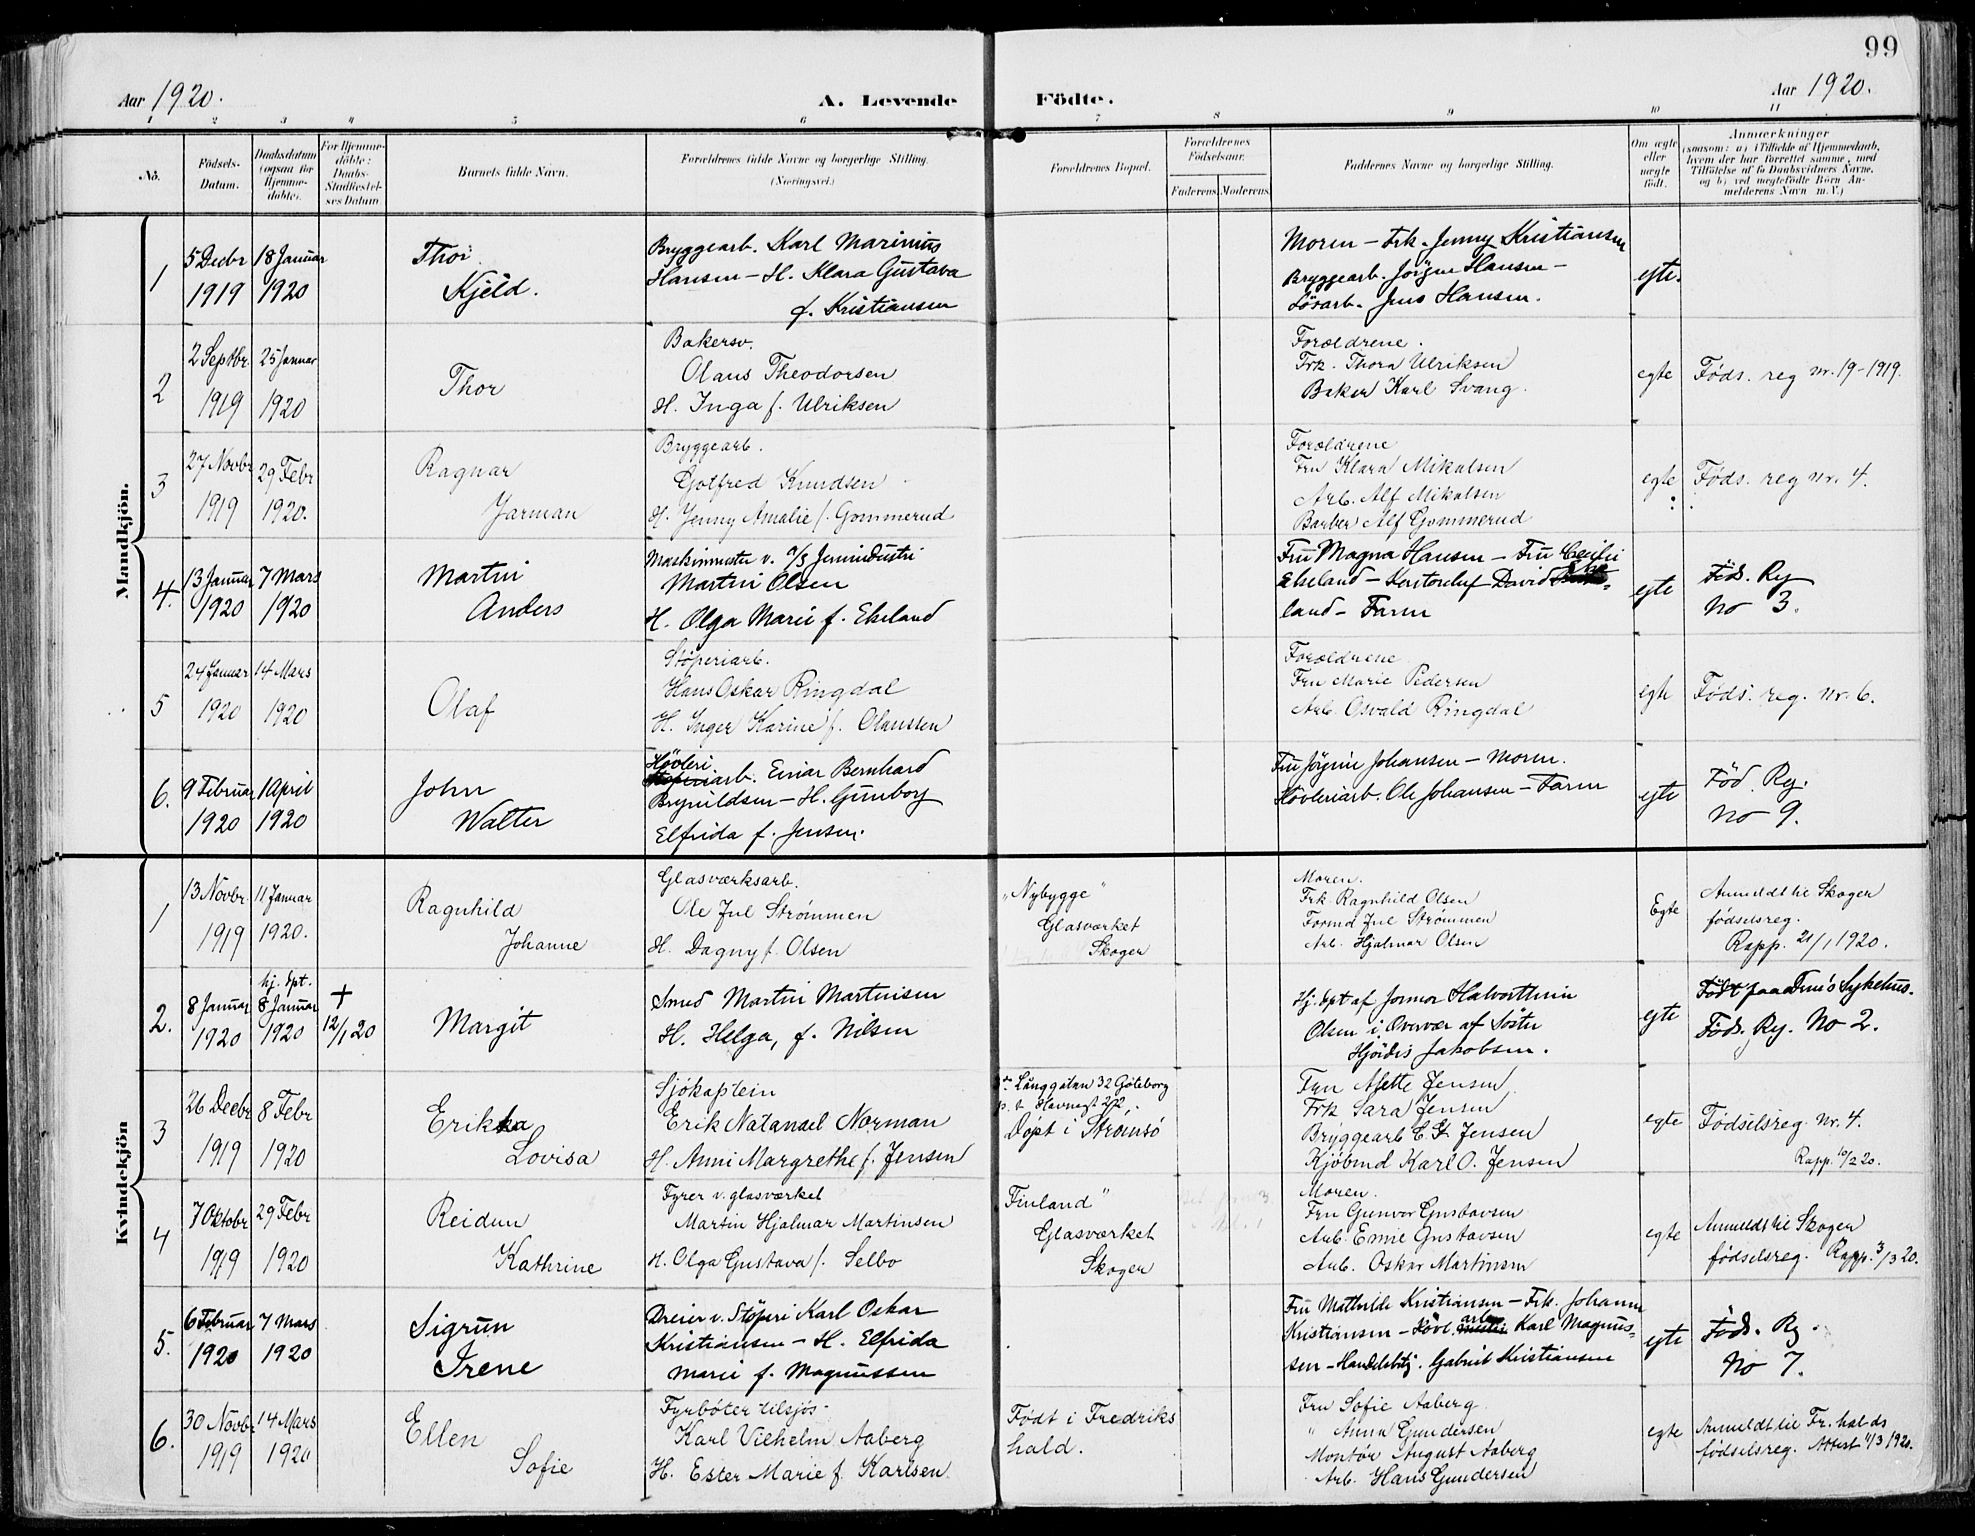 99
Aar 1920.
A. Levende Födte.
Aar 1920.
1 2 3 4 5 6 7 8 9 10 11
No.
Födsels-Datum.
Daabsdatum (ogsaa for Hjemme-döbte).
For Hjemme-döbte: Daabs-Stadfæstel-ses Datum
Barnets fulde Navn.
Forældrenes fulde Navne og borgerlige Stilling.
(Næringsvei.)
Forældrenes Bopæl.
Forældrenes Födselsaar.
Faderens. Moderens.
Faddernes Navne og borgerlige Stilling.
Om ægte eller uægte födt.
Anmærkninger
(saasom: a) i Tilfælde af Hjemmedaab,
hvem der har forrettet samme, med
Tilföielse af to Daabsvidners Navne,
og b) ved uægtefödte Börn An-
melderens Navn m. V.)
Mandkjön.
1
5 Decbr 1919
18 Januar 1920
Thor
Kjeld.
Bryggearb. Karl Marinius
Hansen - H. Klara Gustava
f. Kristiansen
Moren - Frk. Jenny Kristiansen
Bryggearb. Jörgen Hansen -
Jens Hansen.
egte.
2
2 Septbr. 1919
25 Januar 1920
Thor
Bakersv.
Olaus Theodorsen
H. Inga f. Ulriksen
Forældrene.
Frk. Thora Ulriksen
Baker Karl Svang.
egte
Føds. reg nr. 19-1919.
3
27 Novbr 1919
29 Febr 1920.
Ragnar
Jarman
Bryggearb.
Gotfred Knudsen
H. Jenny Amalie f. Gommerud
Forældrene
Fru Klara Mikalsen
Arb. Alf Mikalsen
Barber Alf Gommerud
egte
Føds. reg nr. 4.
4.
13 Januar 1920
7 Mars 1920
Martin
Anders
Maskinmester v. a/s Jernindustri
Martin Olsen
H. Olga Marie f. Ekeland
Fru Magna Hansen - Fru Cecilie
Ekeland - David
land - Faren
egte
Föds. Reg
No 3.
5
24 Januar 1920
14 Mars 1920
Olaf
Støperiarb.
Hans Oskar Ringdal
H. Inger Karine f. Olaussen
Forældrene
Fru Marie Pedersen
Arb. Osvald Ringdal
egte
Føds. reg. nr. 6.
6.
9 Februar 1920
1 April 1920
John
Walter
Høvleri
Støperiarb. Einar Bernhard
Brynildsen - H. Gunborg
Elfrida f. Jensen.
Fru Jörgine Johansen - Moren.
Høvleriarb. Ole Johansen - Faren
egte
Föd. Reg.
No 9.
Kvindekjön
1
13 Novbr. 1919
11 Januar 1920.
Ragnhild
Johanne
Glasværksarb.
Ole Jul Strømmen
H. Dagny f. Olsen
"Nybygge"
Glasværket
Skoger
Moren.
Frk. Ragnhild Olsen
Formd Jul Strømmen
Arb. Hjalmar Olsen
Egte
Anmeldt til Skoger
fødselsreg.
Rapp. 21/1 1920.
2.
8 Januar 1920
hj. dpt.
8 Januar 1920
+
12/1 20
Margit
Smed Martin Martinisen
H. Helga, f. Nilsen
Hj. dpt af Jormor
Olsen i Overvær af Søster
Hjördis Jakobsen.
egte
Födt paa Dms Sykehus.
Föds. Reg. No 2.
3
26 Decbr 1919
8 Febr 1920
Erikka
Lovisa
Sjökaptein
Erik Natanael Norman
H. Anni Margrethe f. Jensen
Långgatan 32 Göteborg
p. t. Havnegt 22.
Döpt i Strømsö
Fru Mette Jensen
Frk Sara Jensen
Bryggearb C. F. Jensen
Kjöbmd Karl O. Jensen
egte
Fødselsreg. nr. 4.
Rapp. 10/2 20.
4
7 Oktobr 1919
29 Febr 1920
Reidun
Kathrine
Fyrer v. glasværket
Martin Hjalmar Martinsen
H. Olga Gustava f. Selbo
Finland"
Glasværket
Skoger
Moren.
Fru Gunvor Gustavsen
Arb. Emil Gustavsen
Arb. Oskar Martinsen
egte
Anmeldt til Skoger
fødselsreg. Rapp. 3/3 20.
5.
6 Februar 1920
7 Mars 1920
Sigrun
Irene
Dreier v. Støperi Karl Oskar
Kristiansen - H. Elfrida
Marie f. Magnussen
Fru Mathilde Kristiansen - Frk. Johanne
Kristiansen - Høvl.arb. Karl Magnus-
sen - Handelsbetj. Gabriel Kristiansen
egte
Föds. Reg.
No 7.
6.
30 Novbr 1919
14 Mars 1920
Ellen
Sofie
Fyrbøter tilsjøs
Karl Vilhelm Aaberg
H. Ester Marie f. Karlsen.
Født i Fredriks
hald.
Fru Sofie Aaberg
" Anna Gundersen
Montør August Aaberg
Arb. Hans Gundersen
egte
Anmeldt til Fr.halds
fødselsreg. Attest 11/3 1920.